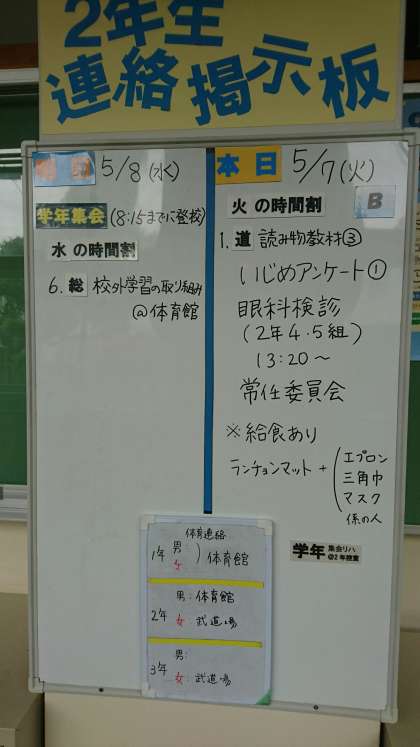 2年生
連絡掲示板
明日 5/8(水)
学年集会 (8:15までに登校)
水の時間割
6. 総 校外学習の取り組み
@体育館
本日 5/7(火)
火の時間割 B
1. 道 読み物教材③
いじめアンケート①
眼科検診
(2年4・5組)
13:20～
常任委員会
※給食あり
ランチョンマット + (エプロン
三角巾
マスク
係の人
学年 集会リハ
@2年教室
体育連絡
1年 男
女 ) 体育館
男: 体育館
2年
女: 武道場
男:
3年
女: 武道場